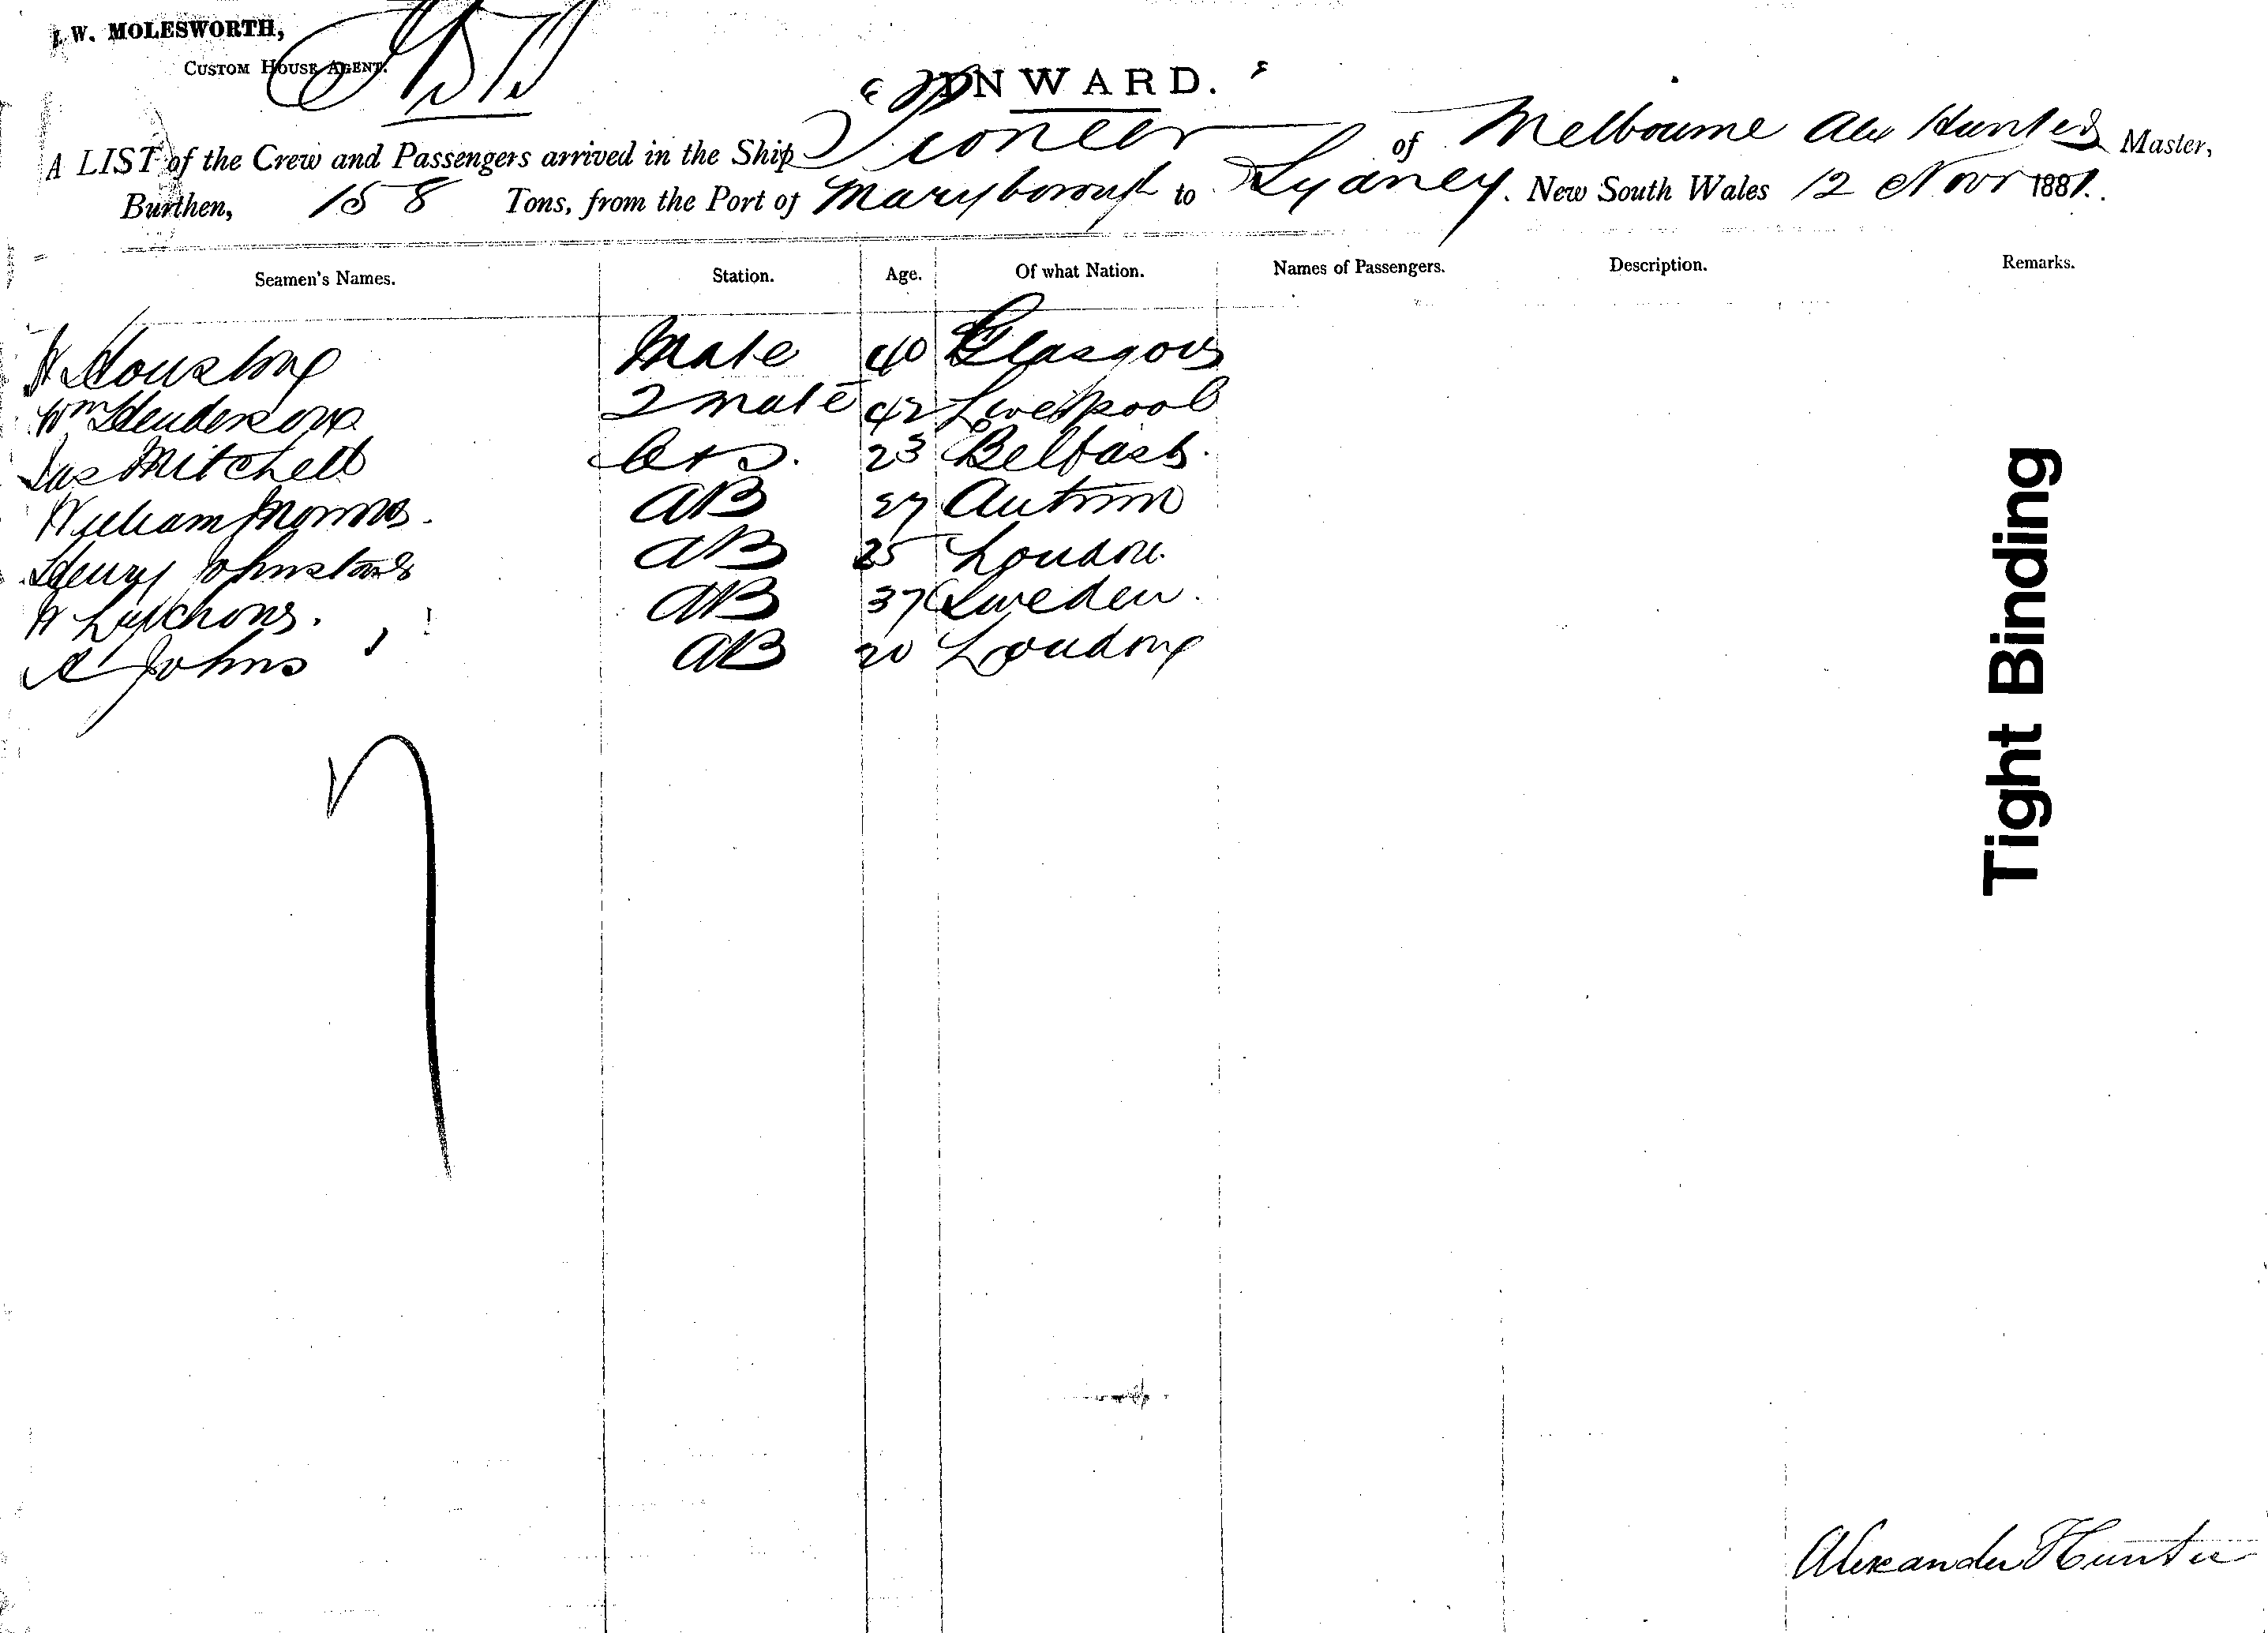 W. MOLESWORTH,
CUSTOM HOUSE AGENT.
INWARD.
A LIST of the Crew and Passengers arrived in the Ship Pioneer of Melbourne Alex Hunter Master,
Burthen, 158 Tons, from the Port of Maryborough to Sydney. New South Wales 12 Novr 1881.
Seamen's Names. Station. Age. Of what Nation. Names of Passengers. Description. Remarks.
Houston Mate 40 Glasgow
Wm Henderson 2 mate 42 Liverpool
Jas Mitchell 23 Belfast.
William Morris. AB 27 Antrim
Henry Johnstone AB 25 London.
AB 37 Sweden.
A Johns AB 20 London
Tight Binding
Alexander Hunter